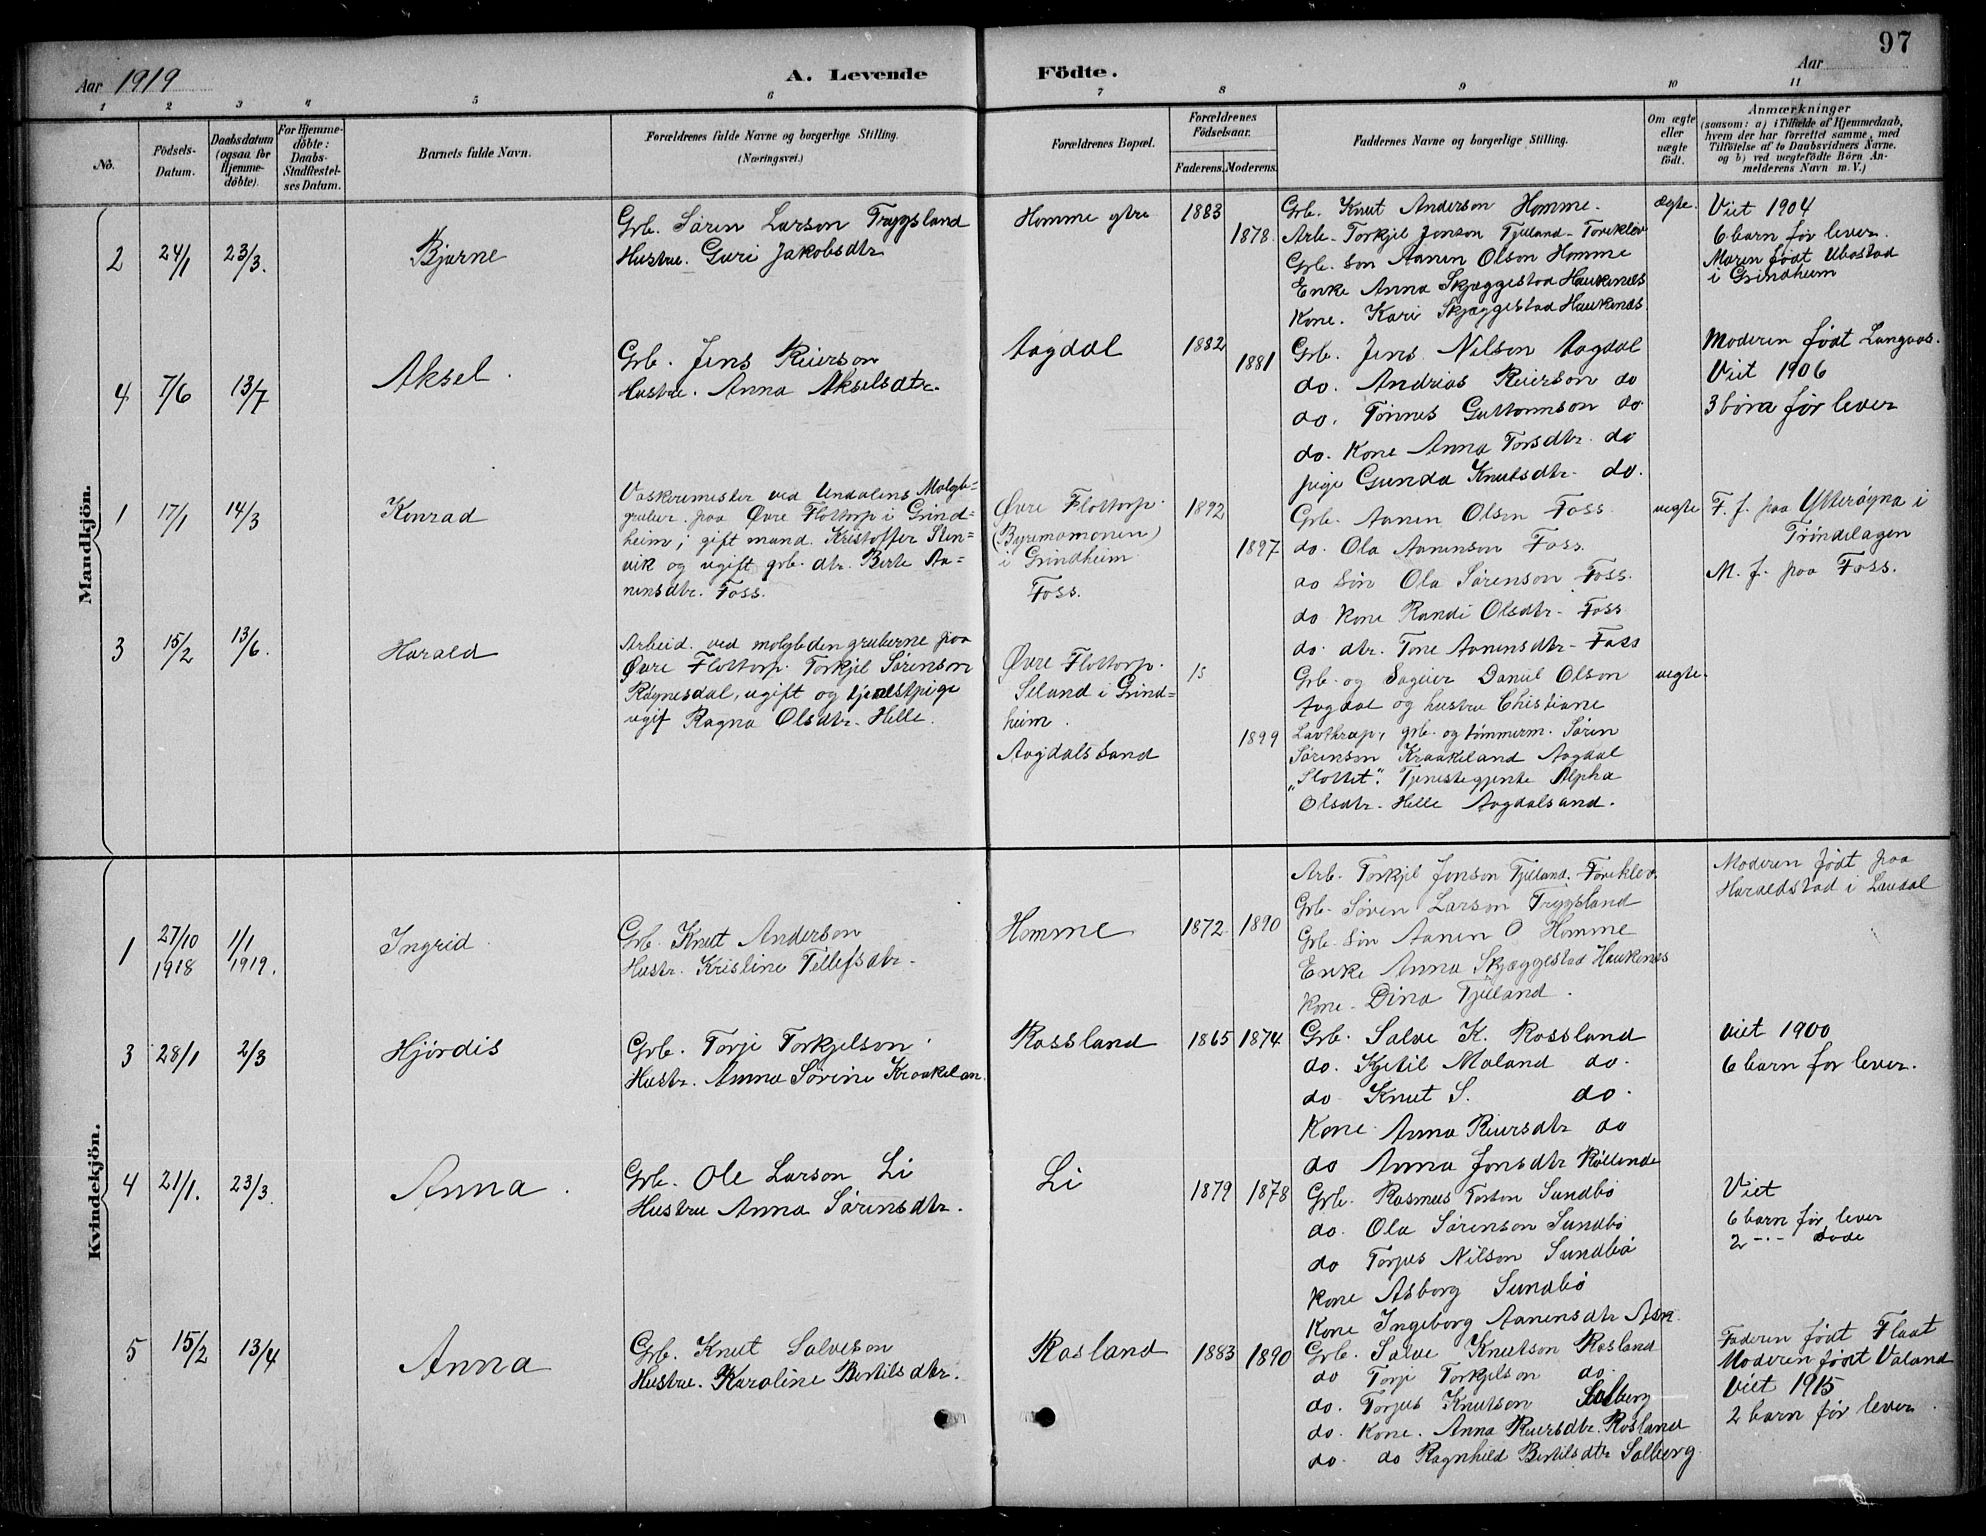 97
Aar 1919
A. Levende Födte.
Aar
1 2 3 4 5 6 7 8 9 10 11
No.
Födsels-Datum.
Daabsdatum (ogsaa for Hjemmedöbte).
For Hjemmedöbte: Daabs-Stadfæstelses Datum.
Barnets fulde Navn.
Forældrenes fulde Navne og borgerlige Stilling. (Næringsvei.)
Forældrenes Bopæl.
Forældrenes Födselsaar.
Faderens. Moderens.
Faddernes Navne og borgerlige Stilling.
Om ægte eller uægte födt.
Anmærkninger
(saasom: a) i Tilfælde af Hjemmedaab, hvem der har forrettet samme, med Tilföielse af to Daabsvidners Navne. og b) ved uægtefödte Börn Anmelderens Navn m. V.)
Mandkjön.
2 24/1 23/3. Bjarne
Grb. Søren Larson Trygsland
Hustru. Guri Jakobsdtr
Homme ytre 1883 1878.
Grb. Knut Anderson Homme.
Arb. Torkjel Jonson Tjelland - Foreklev
Grb. søn Aanen Olson Homme
Enke Anna Skjæggestad Haukenæs
Kone. Kari Skjæggestad Haukenæs
ægte.
Viet 1904
6 barn før lever.
Moren født Ubostad
i Grindheim
4 7/6 13/7 Aksel.
Grb. Jens Reierson
Hustru. Anna Akselsdtr.
Aagdal 1882 1881
Grb. Jens Nilson Aagdal
do. Andrias Reierson do
do. Tønnes Guttormson do
do. Kone Anna Torsdtr. do
pige Gunda Knutsdtr. do.
Moderen født Langaas.
Viet 1906
3 børn før lever
1 17/1 14/3 Konrad
Vaskeremester ved Undalens Molyb=
gruber. paa Øvre Flottorp i Grind=
heim; gift mand. Kristoffer Sten=
vik og ugift grb. dtr. Berte Aa=
nensdtr. Foss.
Øvre Flottorp.
(Byremomonen)
i Grindheim
Foss.
1892 1897
Grb. Aanen Olson Foss
do. Ola Aanenson Foss
do Søn Ola Sørenson Foss.
do Kone Randi Olsdtr. Foss
do. dtr. Tone Aanensdtr. Foss
uegte
F. f. paa Ytterøyna i
Trøndelagen
M. f. paa Foss.
3 15/2 13/6. Harald
Arbeid. ved molybden gruberne paa
Øvre Flottorp. Torkjel Sørenson
Røynesdal, ugift og tjenestpige
ugif Ragna Olsdtr. Helle.
Øvre Flottorp.
Seland i Grind=
heim.
Aagdalssand
15 1899
Grb. og Sageier Daniel Olson
Aagdal og hustru Christiane
Lavthrap, grb. og tømmerm. Søren
Sørenson Kraakeland Aagdal
"Slottet". Tjenestegjente Alpha
Olsdtr. Helle Aagdalsand.
uegte.
Kvindekjön.
1 27/10 1918 1/1 1919. Ingrid
Grb. Knut Anderson
Hustr. Kristine Tellefsdtr.
Homme 1872 1890
Arb. Torkjel Jonson Tjelland. Foreklev.
Grb. Søren Larson Trygsland
Grb. Søn Aanen O Homme
Enke Anna Skjæggestad Haukenæs
Kone. Dina Tjelland.
Moderen født paa
Haraldstad i Laudal
3 28/1 2/3 Hjørdis
Grb. Torje Torkjelson
Hustr. Anna Sørine Kraakelan.
Rossland 1865 1874
Grb. Salve K. Rossland
do. Kjetil Moland do.
do Knut S. do.
Kone Anna Reiersdtr do
do Anna Jonsdtr
viet 1900
6 barn før lever.
4 21/1. 23/3. Anna.
Grb. Ole Larson Li
Hustru Anna Sørensdtr.
Li 1879 1878
Grb. Rasmus Torson Sundbø
do. Ola Sørenson Sundbø
do Torjus Nilson Sundbø
Kone Asborg Sundbø
Kone Ingeborg Aanensdtr Ask
Viet
6 barn før lever
2 -·- døde
5 15/2 13/4 Anna
Grb. Knut Salveson
Hustru. Karoline Bertilsdtr.
Rosland 1883 1890
Grb. Salve Knutson Rosland
do Torje Torkjelson do.
do. Torjus Knutson Solberg
do. Kone. Anna Reiersdtr. Rosland
do. do Ragnhild Bertilsdtr Solberg.
Faderen født Flaat
Moderen født Valand
Viet 1915
2 barn før lever.